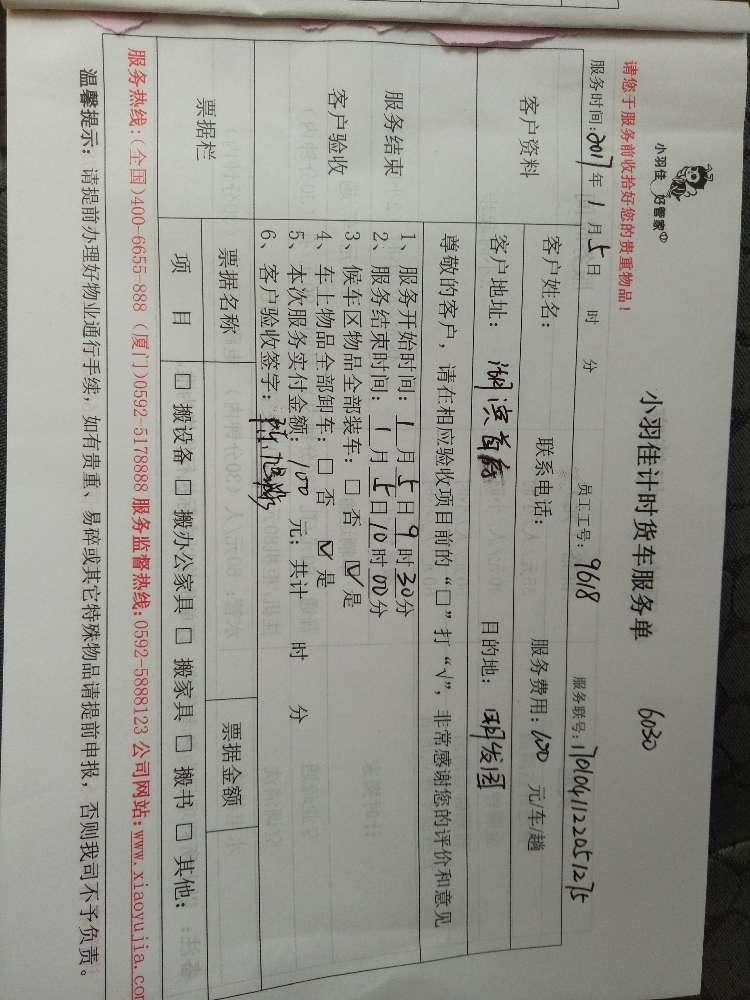 请您于服务前收拾好您的贵重物品！
小羽佳 好管家
小羽佳计时货车服务单 6030
服务时间：2017年1月5日 时 分 员工工号：9618 服务联号：1701041122051275
客户资料
客户姓名： 联系电话： 服务费用：100 元/车/趟
客户地址：湖滨首座 目的地：国发团
尊敬的客户，请在相应验收项目前的“□”打“√”，非常感谢您的评价和意见
服务结束
客户验收
1、服务开始时间：1月5日9时30分
2、服务结束时间：1月5日10时00分
3、候车区物品全部装车：□ 否 ☑ 是
4、车上物品全部卸车：□ 否 ☑ 是
5、本次服务实付金额：100 元；共计 时 分
6、客户验收签字：
票据栏
票据名称 票据金额
项 目 □ 搬设备 □ 搬办公家具 □ 搬家具 □ 搬书 □ 其他：
服务热线：(全国)400-6655-888 (厦门)0592-5178888 服务监督热线：0592-5888123 公司网站：www.xiaoyujia.com
温馨提示：请提前办理好物业通行手续，如有贵重、易碎或其它特殊物品请提前申报，否则我司不予负责。